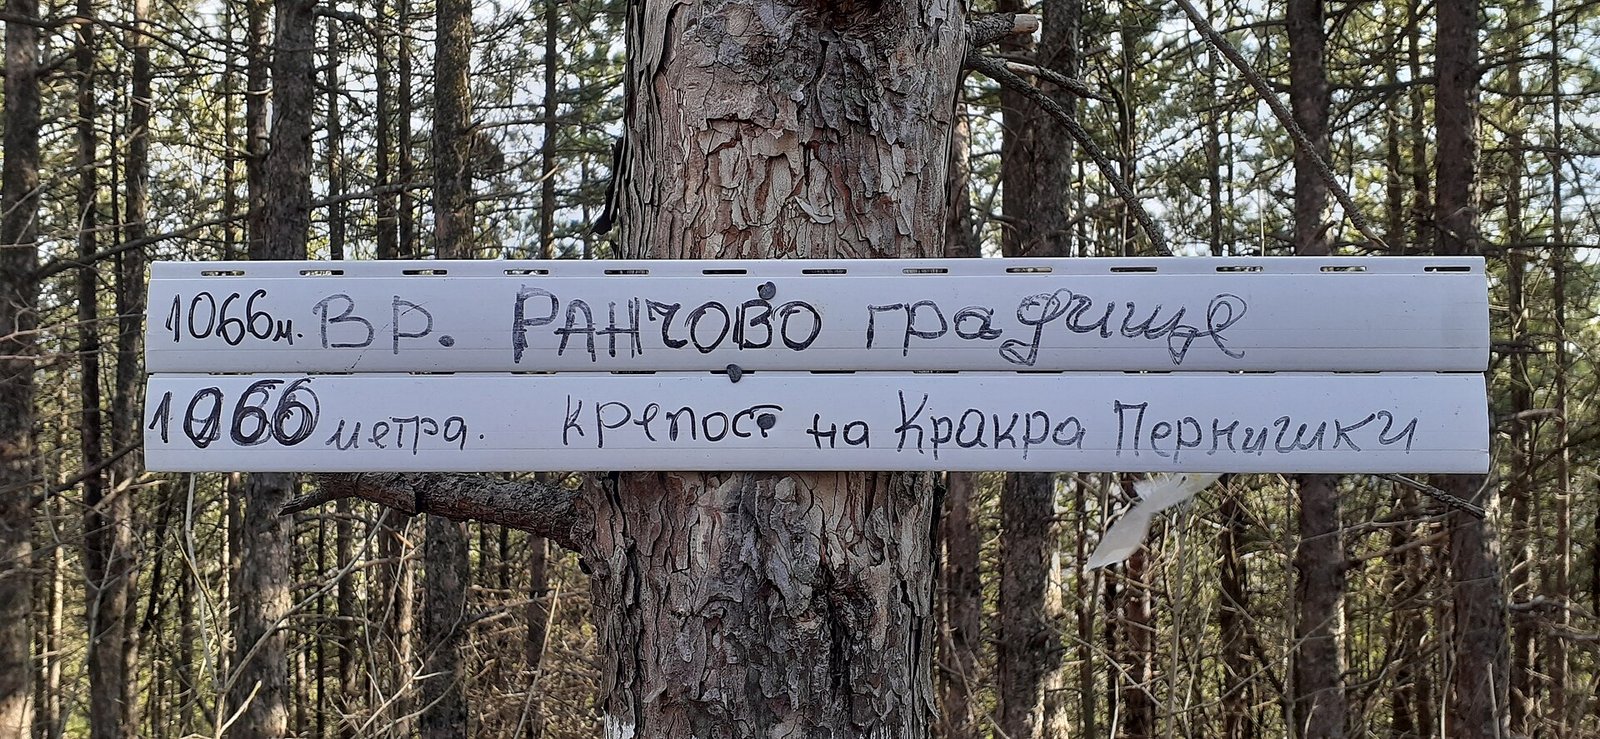 1066м. ВР. РАНЧОВО градище
1066 метра. крепост на Кракра Пернишки